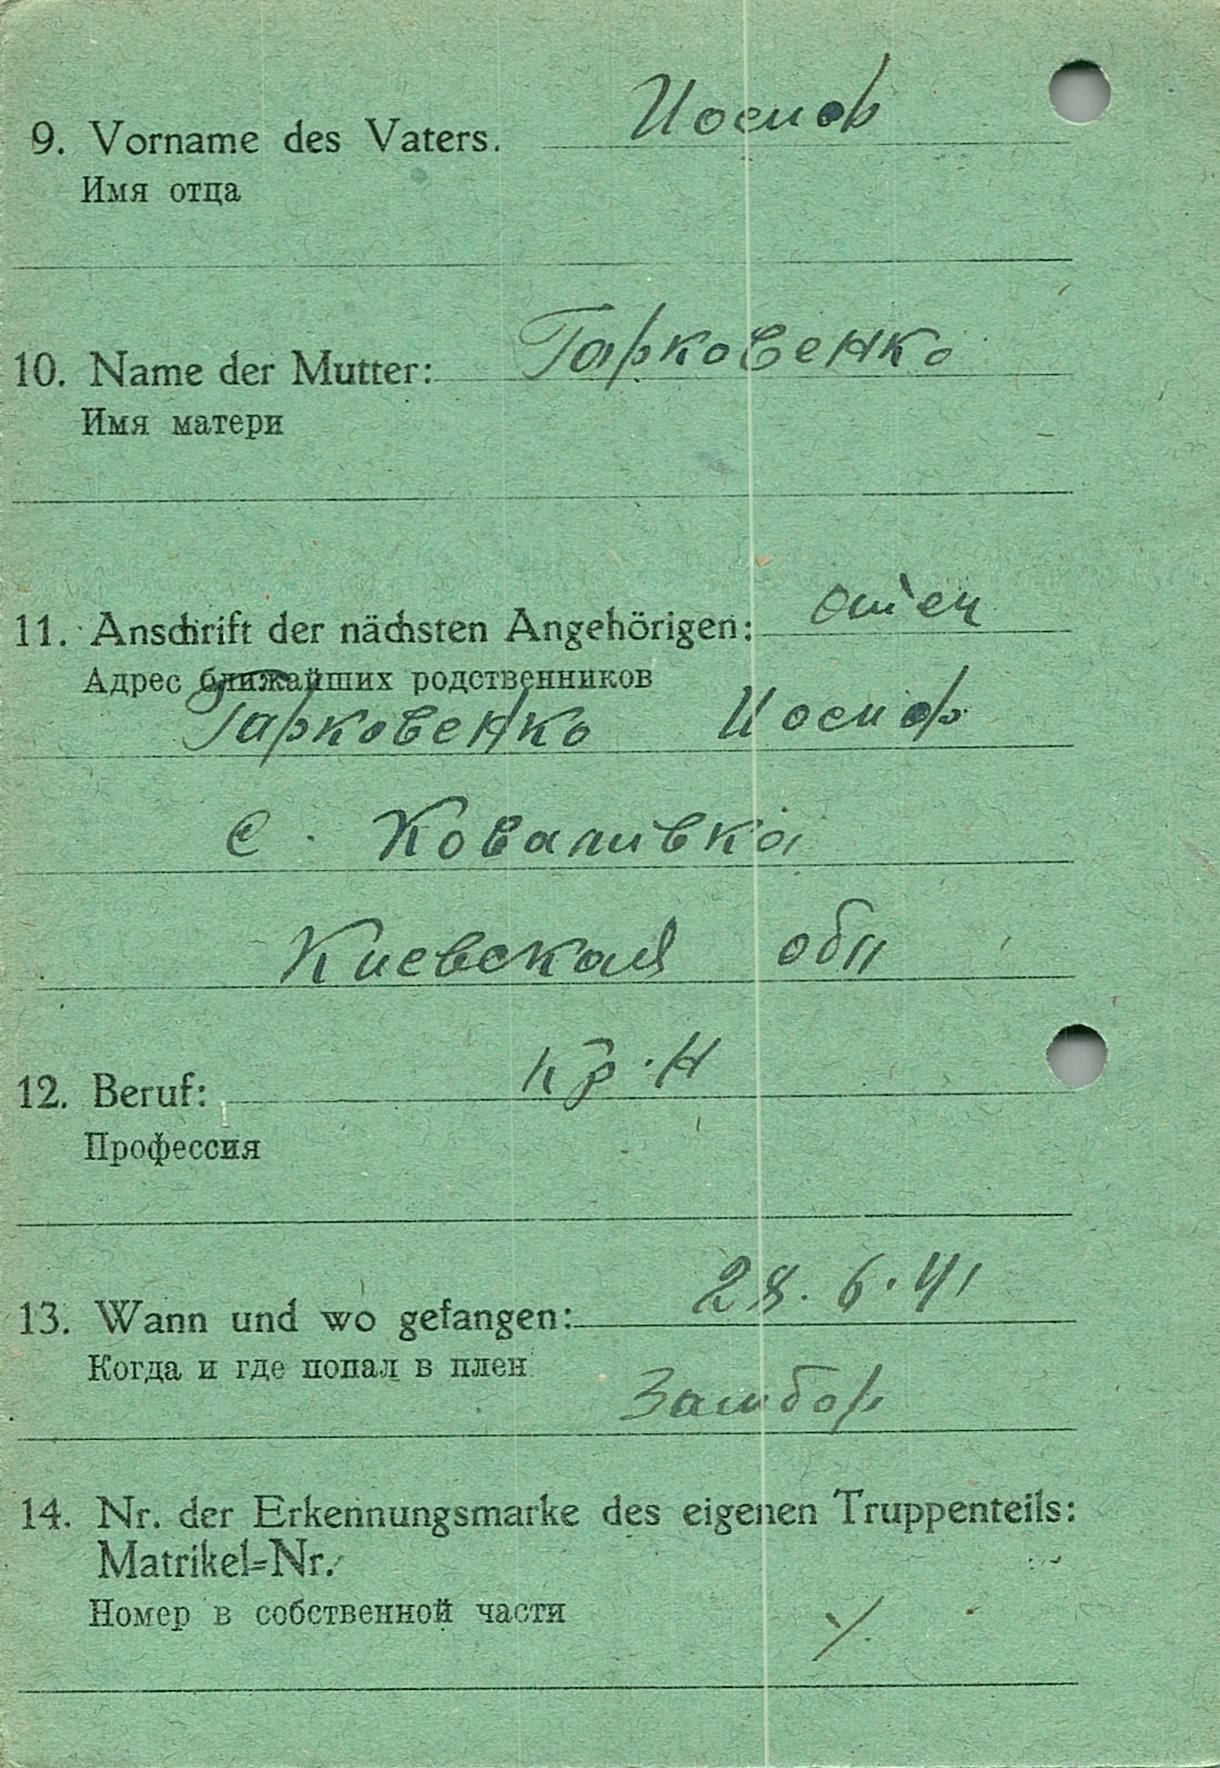 9. Vorname des Vaters. Иосиф
Имя отца
10. Name der Mutter: Гарковенко
Имя матери
11. Anschrift der nächsten Angehörigen: отец
Адрес ближайших родственников
Гарковенко Иосиф
с. Коваливка
Киевская обл
12. Beruf: кр-н
Профессия
13. Wann und wo gefangen: 28.6.41
Когда и где попал в плен
14. Nr. der Erkennungsmarke des eigenen Truppenteils:
Matrikel-Nr.
Номер в собственной части